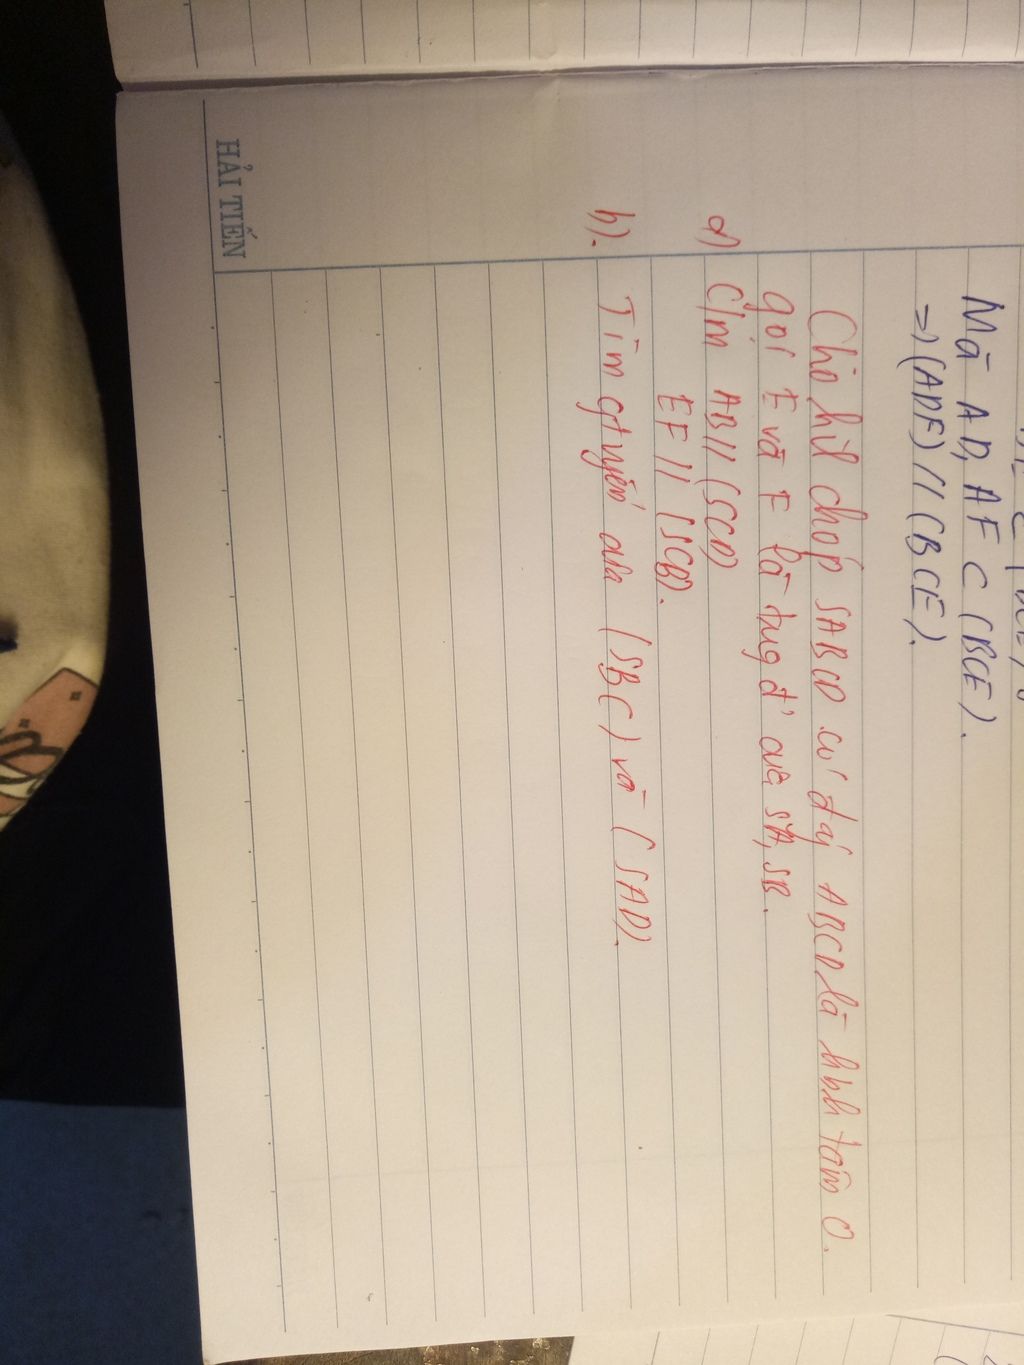 Mà AD, AF C (BCE).
=) (ADF) // (BCE).
Cho hìh chóp SABCD có đáy ABCD là hbh tâm O.
gọi E và F là trug đ' của SA, SB.
a) C/m AB // (SCD)
EF // (SCD).
b). Tìm gtuyến của (SBC) và (SAD).
HẢI TIẾN